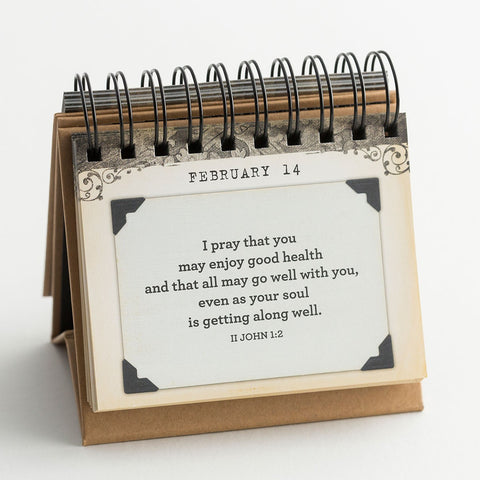 FEBRUARY 14
I pray that you
may enjoy good health
and that all may go well with you,
even as your soul
is getting along well.
II JOHN 1:2